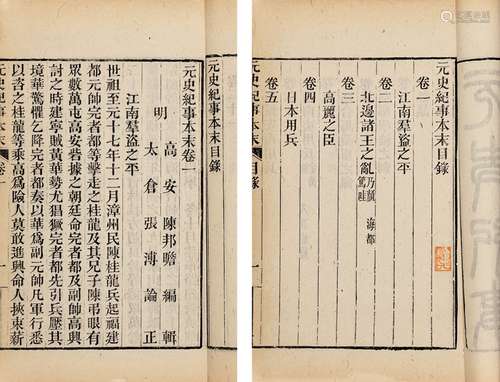 元史紀事本末目錄
卷一
江南羣盜之平
卷二
北邊諸王之亂 乃顏 海都 篤哇
卷三
高麗之臣
卷四
日本用兵
卷五
元史紀事本末 目錄
元史紀事本末目錄
元史紀事本末卷一
明 高安陳邦瞻編輯
太倉張溥論正
世祖至元十七年十二月漳州民陳桂龍兵起福建
都元帥完者都等擊走之桂龍及其兄子陳弔眼有
眾數萬屯高安砦據之朝廷命完者都及副帥高興
討之時建寧賊黃華勢尤猖獗完者都先引兵壓其
境華驚懼乞降完者都奏以華爲副元帥凡軍行悉
以咨之桂龍等乘高爲險人莫敢進興命人挾束薪
元史紀事本末 卷一